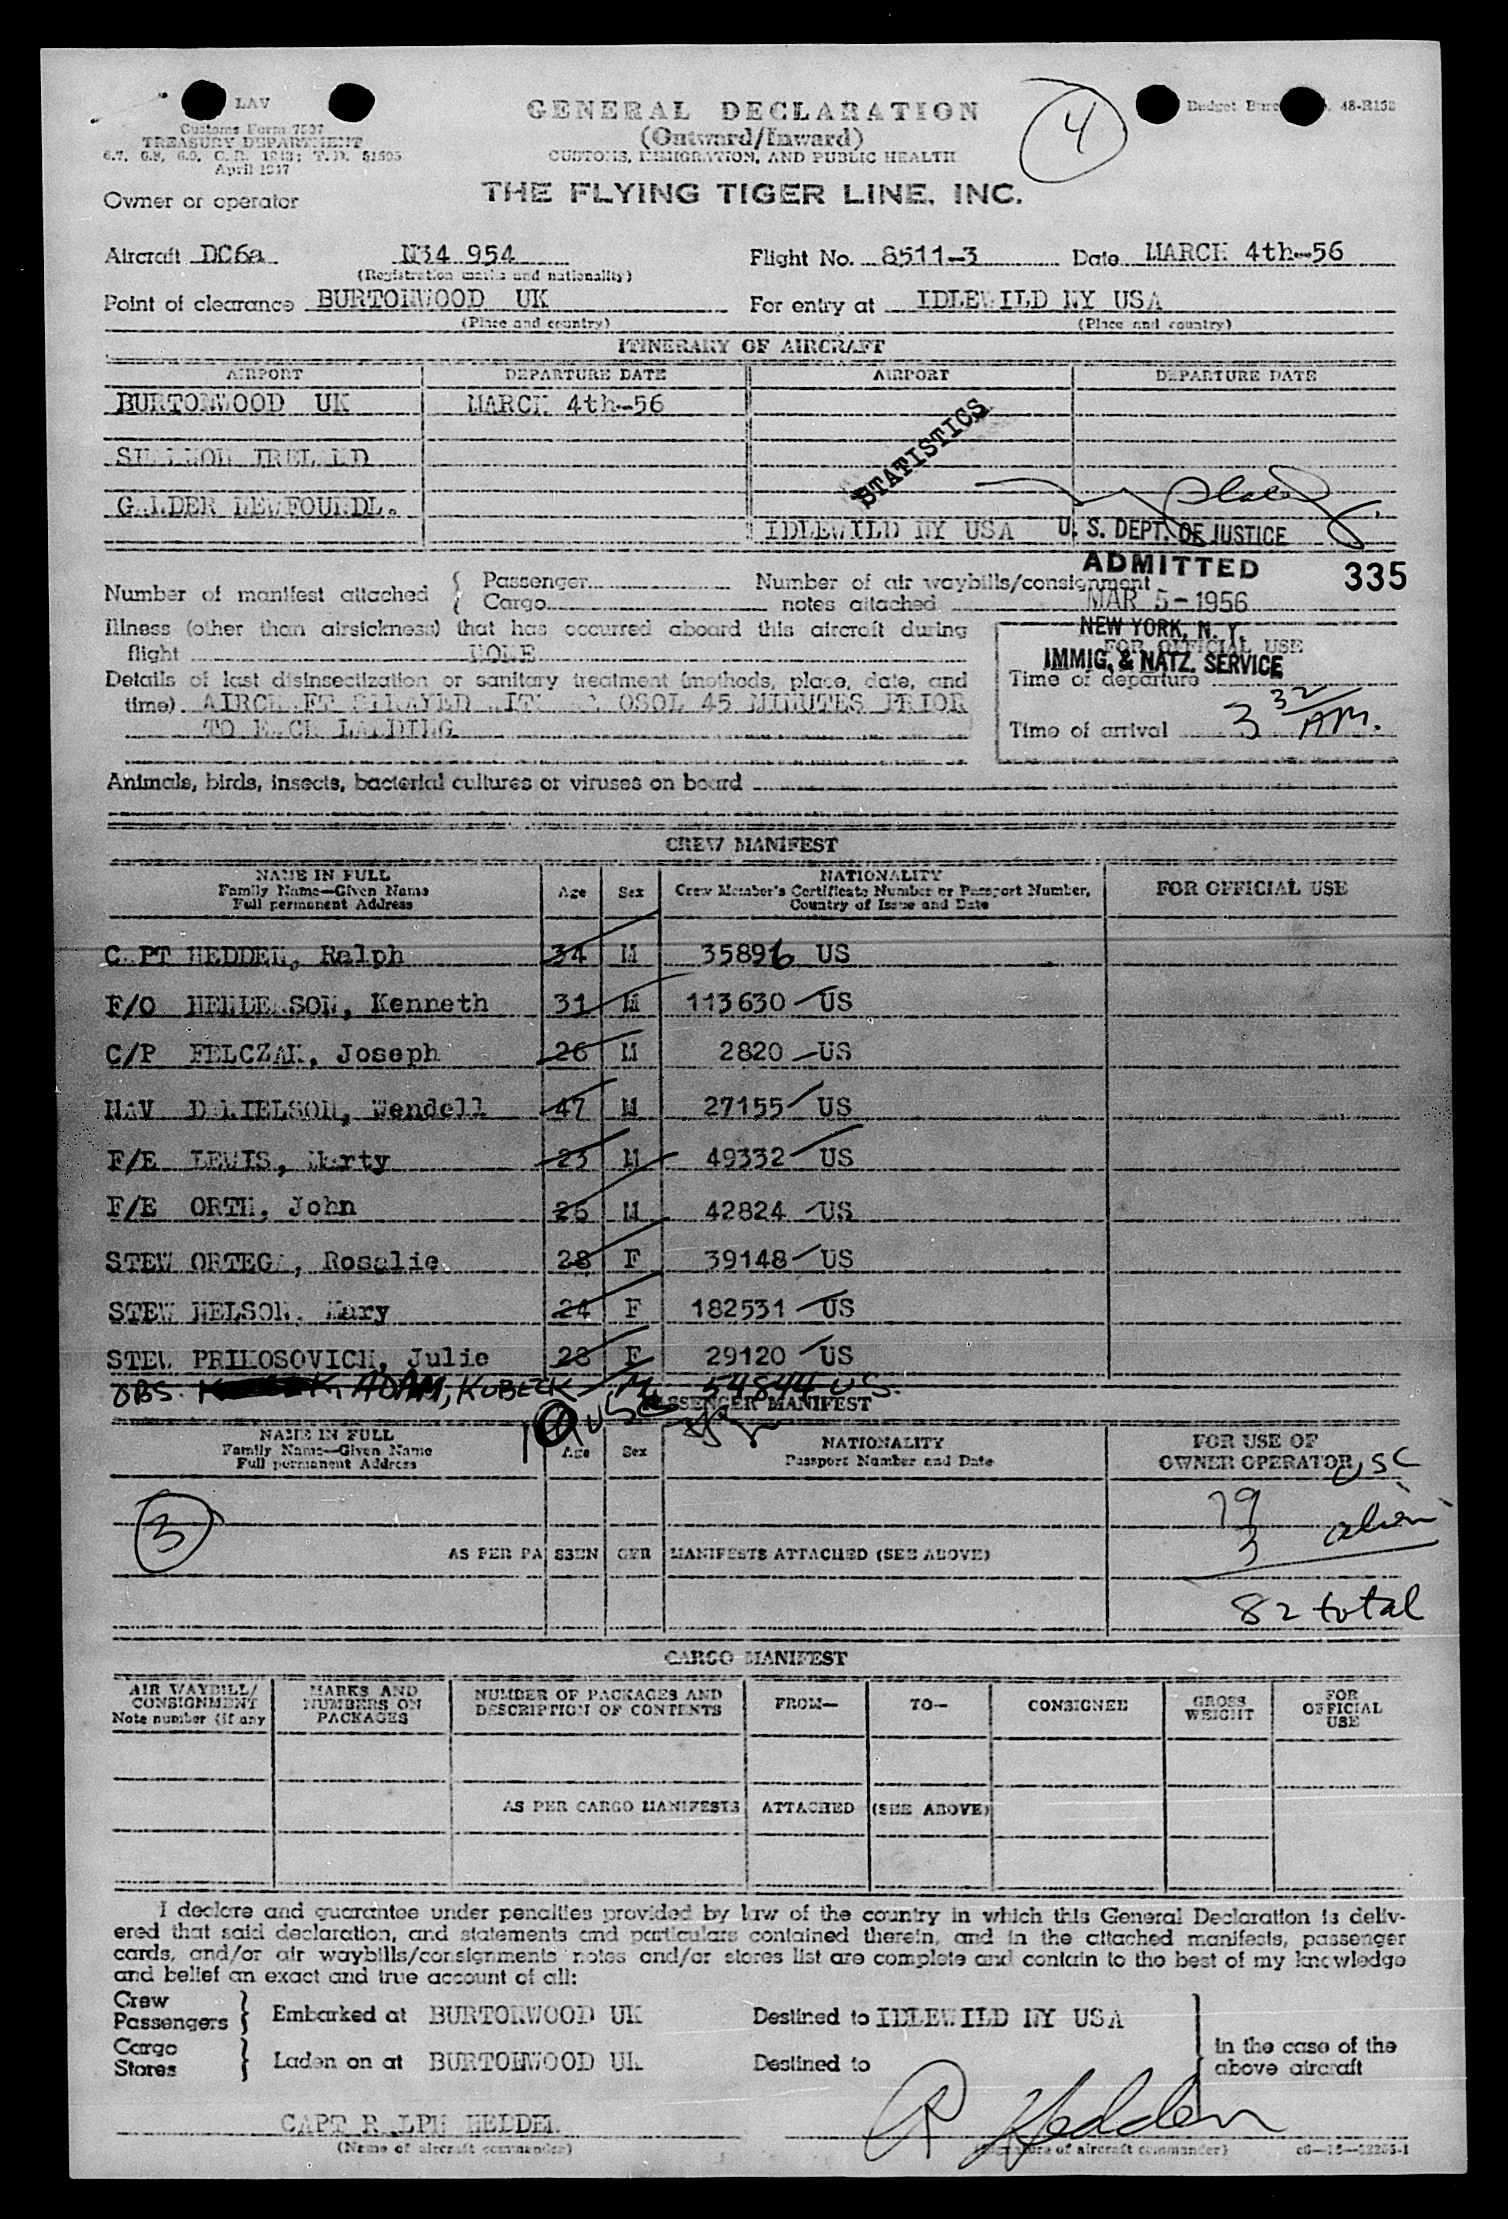 LAV
Customs Form 7507
TREASURY DEPARTMENT
6.7, 6.8, 6.9, C. R. 1943; T.D. 51505
April 1947
GENERAL DECLARATION
(Outward/Inward)
CUSTOMS, IMMIGRATION, AND PUBLIC HEALTH
4
Budget 48-R152
Owner or operator THE FLYING TIGER LINE, INC.
Aircraft DC6a N34 954 Flight No. 8511-3 Date MARCH 4th-56
(Registration marks and nationality)
Point of clearance BURTONWOOD UK For entry at IDLEWILD NY USA
(Place and country) (Place and country)
ITINERARY OF AIRCRAFT
AIRPORT DEPARTURE DATE AIRPORT DEPARTURE DATE
BURTONWOOD UK MARCH 4th-56
STATISTICS
SHANNON IRELAND
GANDER NEWFOUNDL.
IDLEWILD NY USA U. S. DEPT. OF JUSTICE
ADMITTED 335
MAR 5-1956
NEW YORK, N. Y.
IMMIG. & NATZ. SERVICE
Number of manifest attached { Passenger Number of air waybills/consignment
Cargo notes attached
Illness (other than airsickness) that has occurred aboard this aircraft during
flight NONE
FOR OFFICIAL USE
Details of last disinsectization or sanitary treatment (methods, place, date, and
Time of departure
time) AIRCRAFT SPRAYED WITH AEROSOL 45 MINUTES PRIOR
TO EACH LANDING
Time of arrival 3 32 AM.
Animals, birds, insects, bacterial cultures or viruses on board
CREW MANIFEST
NAME IN FULL
Family Name—Given Name
Full permanent Address
Age Sex
NATIONALITY
Crew Member's Certificate Number or Passport Number,
Country of Issue and Date
FOR OFFICIAL USE
CAPT HEDDEN, Ralph 34 M 35896 US
F/O HENDERSON, Kenneth 31 M 113630 US
C/P FELCZAK, Joseph 26 M 2820 US
NAV DANIELSON, Wendell 47 M 27155 US
F/E LEWIS, Marty 23 M 49332 US
F/E ORTH, John 26 M 42824 US
STEW ORTEGA, Rosalie 28 F 39148 US
STEW NELSON, Mary 24 F 182531 US
STEW PRILOSOVICH, Julie 28 F 29120 US
OBS. ADAM, KUBECK M 54844 U.S.
PASSENGER MANIFEST
NAME IN FULL
Family Name—Given Name
Full permanent Address
Age Sex
NATIONALITY
Passport Number and Date
FOR USE OF
OWNER OPERATOR
79 USC
3 alien
3
AS PER PASSENGER MANIFESTS ATTACHED (SEE ABOVE)
82 total
CARGO MANIFEST
AIR WAYBILL/
CONSIGNMENT
Note number (if any
MARKS AND
NUMBERS ON
PACKAGES
NUMBER OF PACKAGES AND
DESCRIPTION OF CONTENTS
FROM—
TO—
CONSIGNEE
GROSS
WEIGHT
FOR
OFFICIAL
USE
AS PER CARGO MANIFESTS ATTACHED (SEE ABOVE)
I declare and guarantee under penalties provided by law of the country in which this General Declaration is deliv-
ered that said declaration, and statements and particulars contained therein, and in the attached manifests, passenger
cards, and/or air waybills/consignments notes and/or stores list are complete and contain to the best of my knowledge
and belief an exact and true account of all:
Crew
Passengers } Embarked at BURTONWOOD UK Destined to IDLEWILD NY USA
Cargo
Stores } Laden on at BURTONWOOD UK Destined to
in the case of the
above aircraft
CAPT RALPH HEDDEN R Hedden
(Name of aircraft commander) (Signature of aircraft commander)